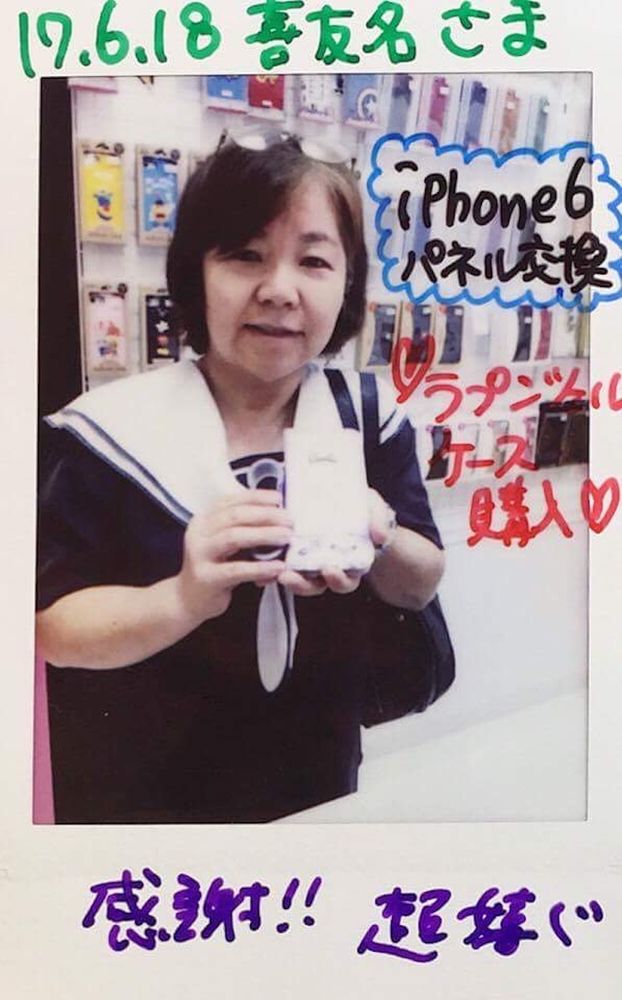 17.6.18 喜友名さま
iPhone6
パネル交換
♡ラプンツェル
ケース
購入♡
感謝!! 超嬉ぐ